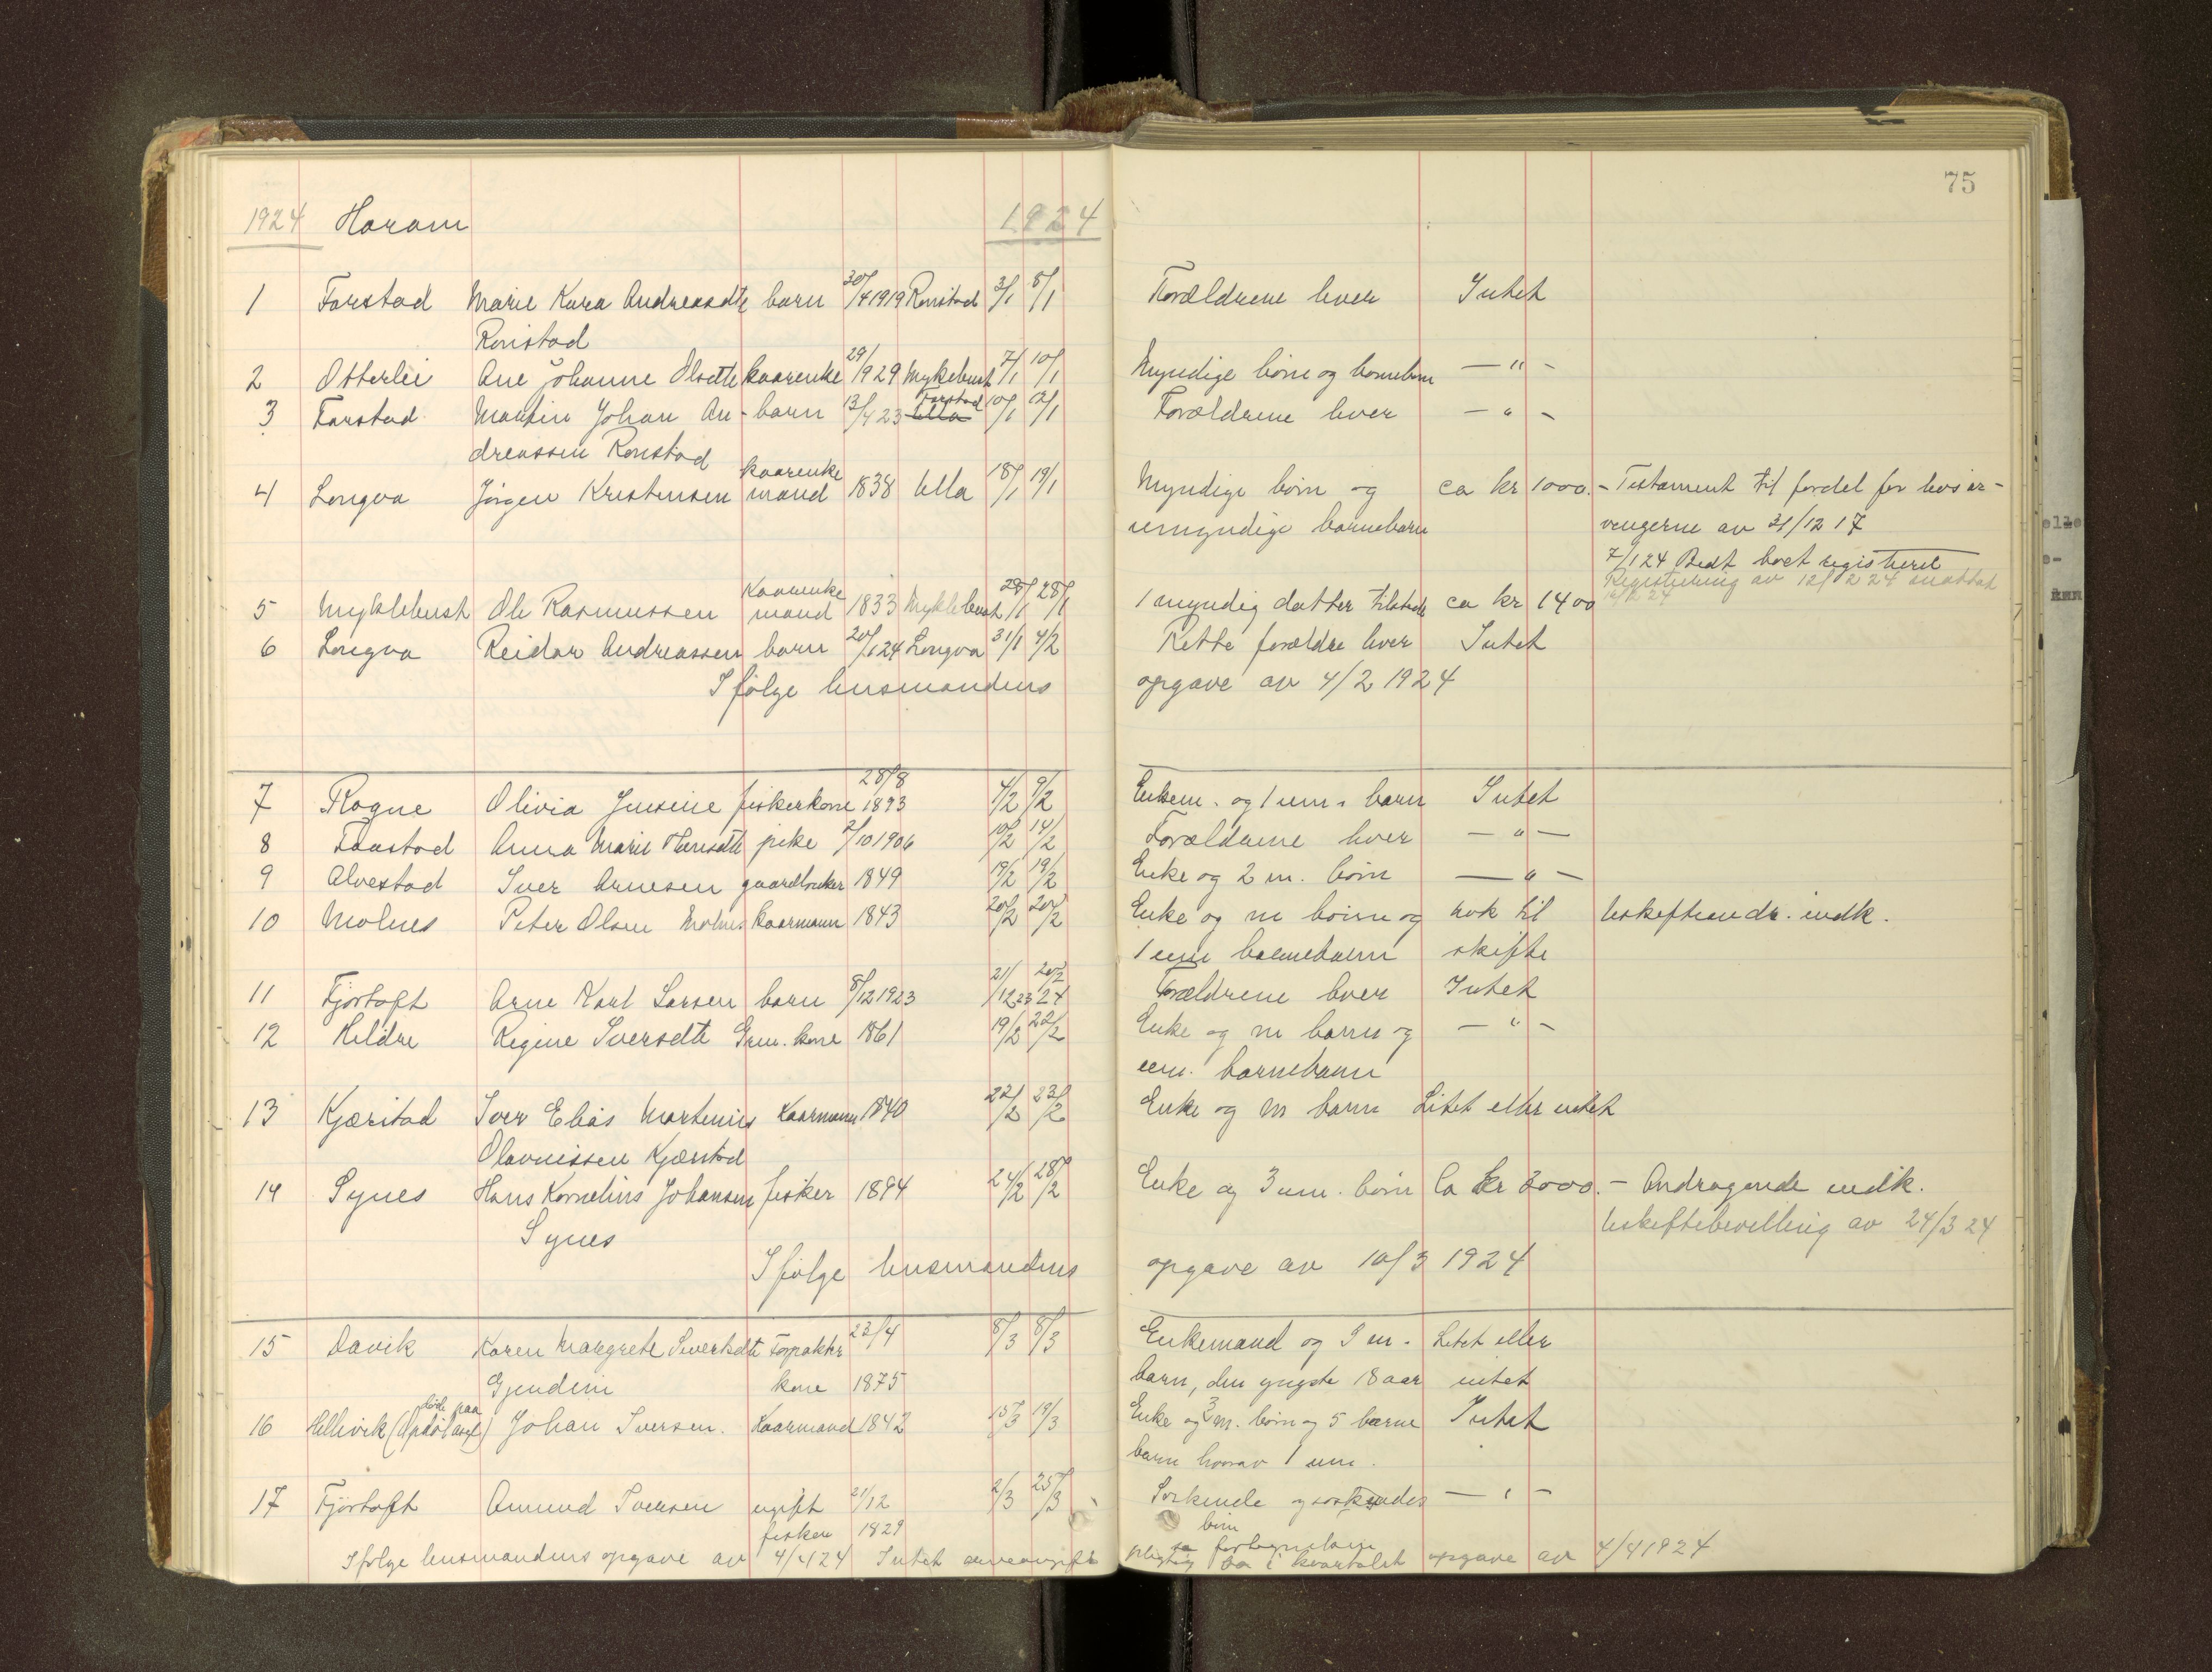 75
1924 Haram 1924
1 Farstad Marie Kara Andreasdtr barn 30/4 1919 Ronstad 3/1 8/1 Forældrene lever Intet
Ronstad
2 Otterlei Ane Johanne Olsdtr kaarenke 29/9 29 Myklebust 7/1 10/1 Myndige børn og barnebarn — " -
3 Farstad Martin Johan An- barn 13/4 23 Ulla Farstad 10/1 12/1 Forældrene lever — " -
dreassen Ronstad
4 Longva Jørgen Kristensen kaarenke 1838 Ulla 18/1 19/1 Myndige børn og ca kr 1000.- Testament til fordel for livsar-
mand umyndige barnebarn vingerne av 31/12 17
7/1 24 Bedt boet registreret
Registrering av 12/2 24
5 Myklebust Ole Rasmussen Kaarenke 1833 Myklebust 28/1 28/1 1 myndig datter tilstede ca kr 1400
mand
6 Longva Reidar Andreassen barn 20/1 24 Longva 31/1 4/2 Rette forældre lever Intet
Ifølge lensmandens opgave av 4/2 1924
7 Rogne Olivia Jensine fiskerkone 28/8 1893 4/2 9/2 Enkem. og 1 um. barn Intet
8 Farstad Anna Marie Hansdtr pike 2/10 1906 10/2 14/2 Forældrene lever — " —
9 Alvestad Iver Arnesen gaardbruker 1849 19/2 19/2 Enke og 2 m. børn — " -
10 Molnes Peter Olsen Molnes kaarmann 1843 20/2 20/2 Enke og m børn og nok til Uskifteandr. indk.
1 um barnebarn skifte
11 Fjørtoft Arne Karl Larsen barn 8/12 1923 21/12 23 20/2 24 Forældrene lever Intet
12 Hildre Regine Iversdtr Grm. kone 1861 19/2 22/2 Enke og m barn og — " -
um. barnebarn
13 Kjærstad Iver Elias Martinus Kaarmann 1840 22/2 23/2 Enke og m barn Litet eller intet
Olavnissen Kjærstad
14 Synes Hans Kornelius Johansen fisker 1894 24/2 28/2 Enke og 3 um. børn Ca kr 3000.- Andragende indk.
Synes Uskiftebevilling av 24/3 24
Ifølge lensmandens opgave av 10/3 1924
15 Davik Karen Margrete Sivertsdtr Forpakter 23/4 8/3 8/3 Enkemand og 9 m. Litet eller
Gjendem kone 1875 barn, den yngste 18 aar intet
16 Hellevik (døde paa Opdøl asyl) Johan Iversen. Kaarmand 1842 15/3 19/3 Enke og 3 m. børn og 5 barne Intet
barn hvorav 1 um.
17 Fjørtoft Amund Iversen ugift 21/12 2/3 25/3 Søskende og søskendes — " -
fisker 1829 børn
Ifølge lensmandens opgave av 4/4 24 Intet arveavgifts
pligtig bo i kvartalet opgave av 4/4 1924